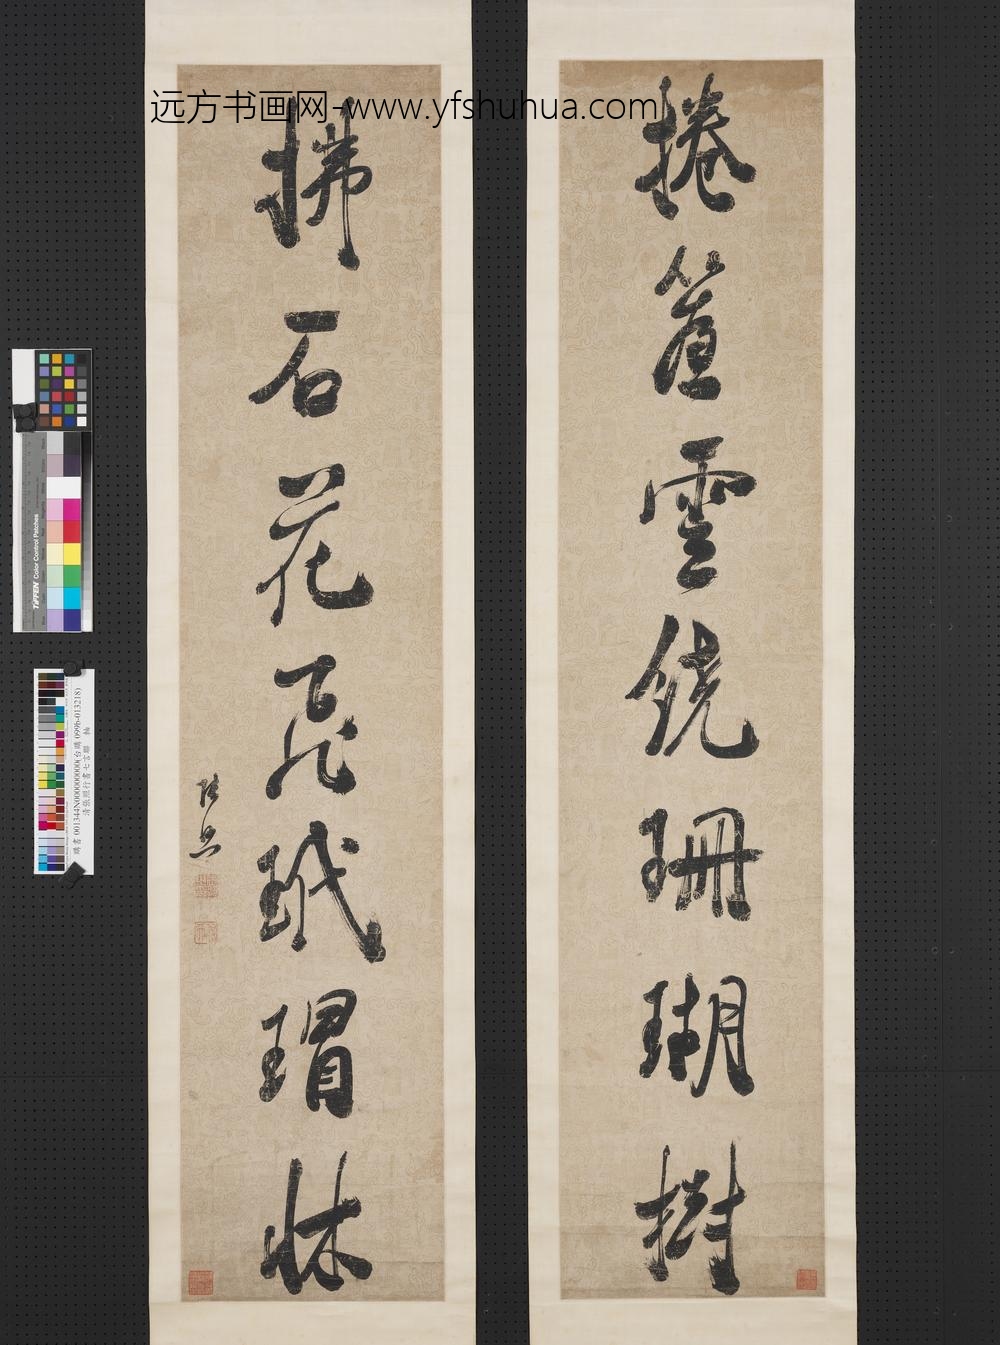 远方书画网-www.yfshuhua.com
捲簷雲繞珊瑚樹
拂石花飛玳瑁牀
張照
TIFFEN Color Control Patches
購書 001344N000000000(台購 0996-013218)
清張照行書七言聯 軸